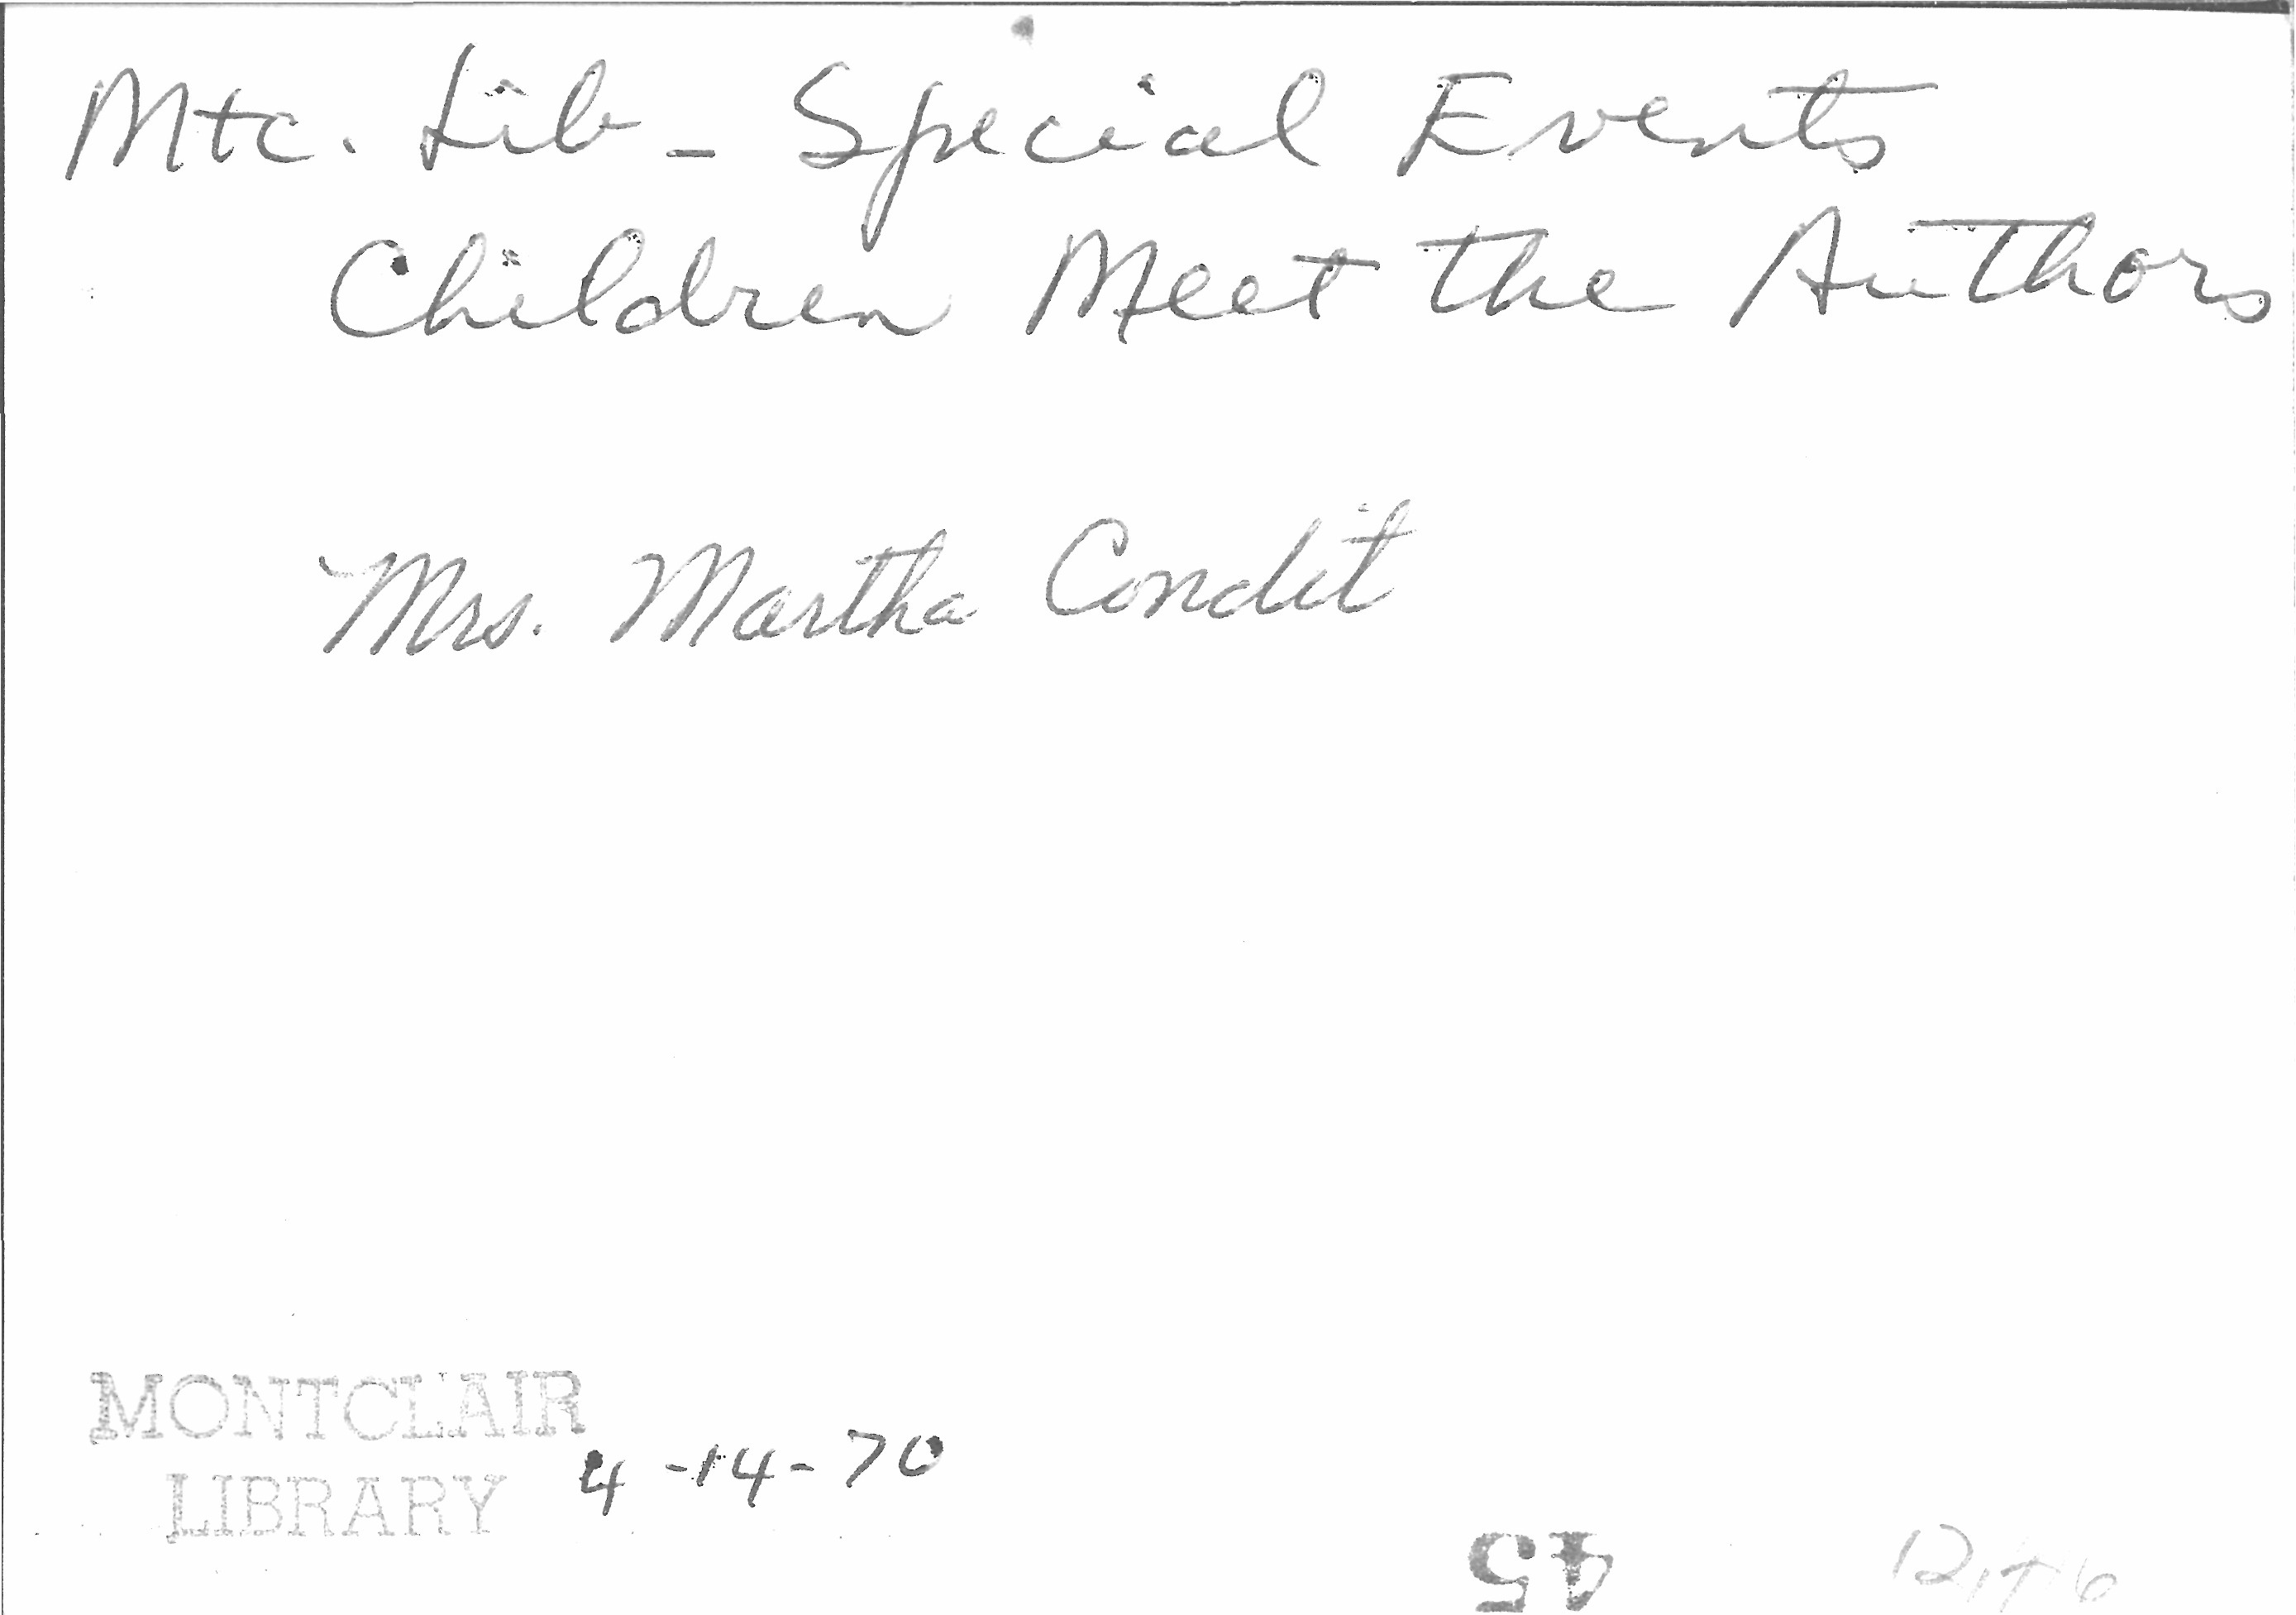 Mtc. Lib - Special Events
Children Meet the Authors
Mrs. Martha Condit
MONTCLAIR
LIBRARY 4-14-70
45